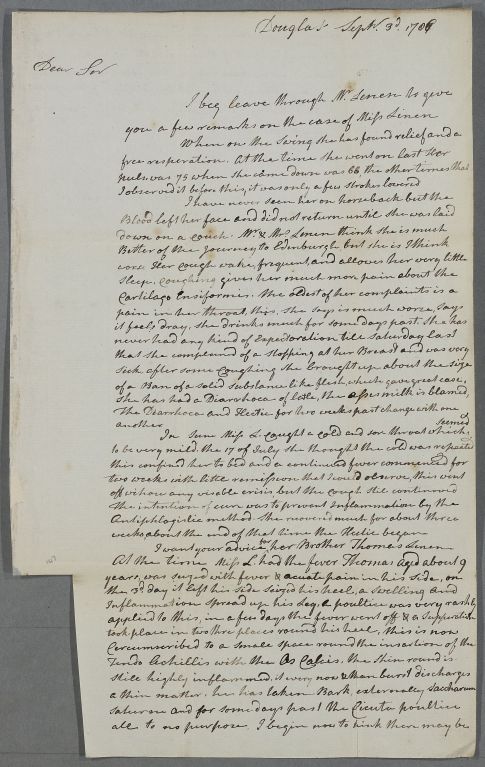 Douglas Septr. 3d. 1786
Dear Sir
I beg leave through Mr. Linen to give
you a few remarks on the case of Miss Linen
When on the Swing she has found relief and a
free resperation. At the time she went on last Her
puls was 75 when she came down was 66 the other times that
I observed it before this, it was only a few strokes lowered
I have never seen her on horseback but the
Blood left her face and did not return until she was laid
down on a couch. Mr. & Mrs. Linen think she is much
Better of the Journey to Edinburgh but she is I think
worse Her cough wake, frequent, and allows her very little
sleep. Coughing gives her much more pain about the
Cartilago Ensiformes. the oldest of her complaints is a
pain in her throat, this, she says is much worse, says
it feels dray, she drinks much for some days past. She has
never had any kind of Expectoration till Saturday last
that she complaned of a stopping at her Breast and was very
Sick after some Coughing she brought up about the size
of a Ban of a solid substance like flesh, which gave great ease,
she has had a Diarrhoea of late, the asses milk is blamed,
The Diarrhoea and Hectic for two weeks past change with one
another
In June Miss L. caught a cold and sore throat which seemed
to be very mild. the 17 of July she thought the cold was repeated
this confined her to bed and a continued fever commenced for
two weeks with little remission that I could observe, this went
off without any visable crisis but the cough still continued
The intention of cure was to prevent Inflammation by the
Antiphlogistic method she recovered much for about three
weeks about the end of that time the Hectic began
I want your advice for her Brother Thomas Linen
At the time Miss L had the fever Thomas aged about 9
years, was seized with fever & acuate pain in his side, on
the 3d day it left his side seized his heel, a swelling and
Inflammation spread up his leg, a poultice was very rashly
applied to this, in a few days the fever went off & a Suppuration
took place in two three places round his heel, this is now
Circumscribed to a small space round the insertion of the
Tendo Achillis with the Os Calcis. the skin round is
still highly inflammed, it every now & than burst discharges
a thin matter. he has taken Bark, externaley Saccharum
Saturni and for some days past the Cicuta poultice
all to no purpose. I begin now to think there may be